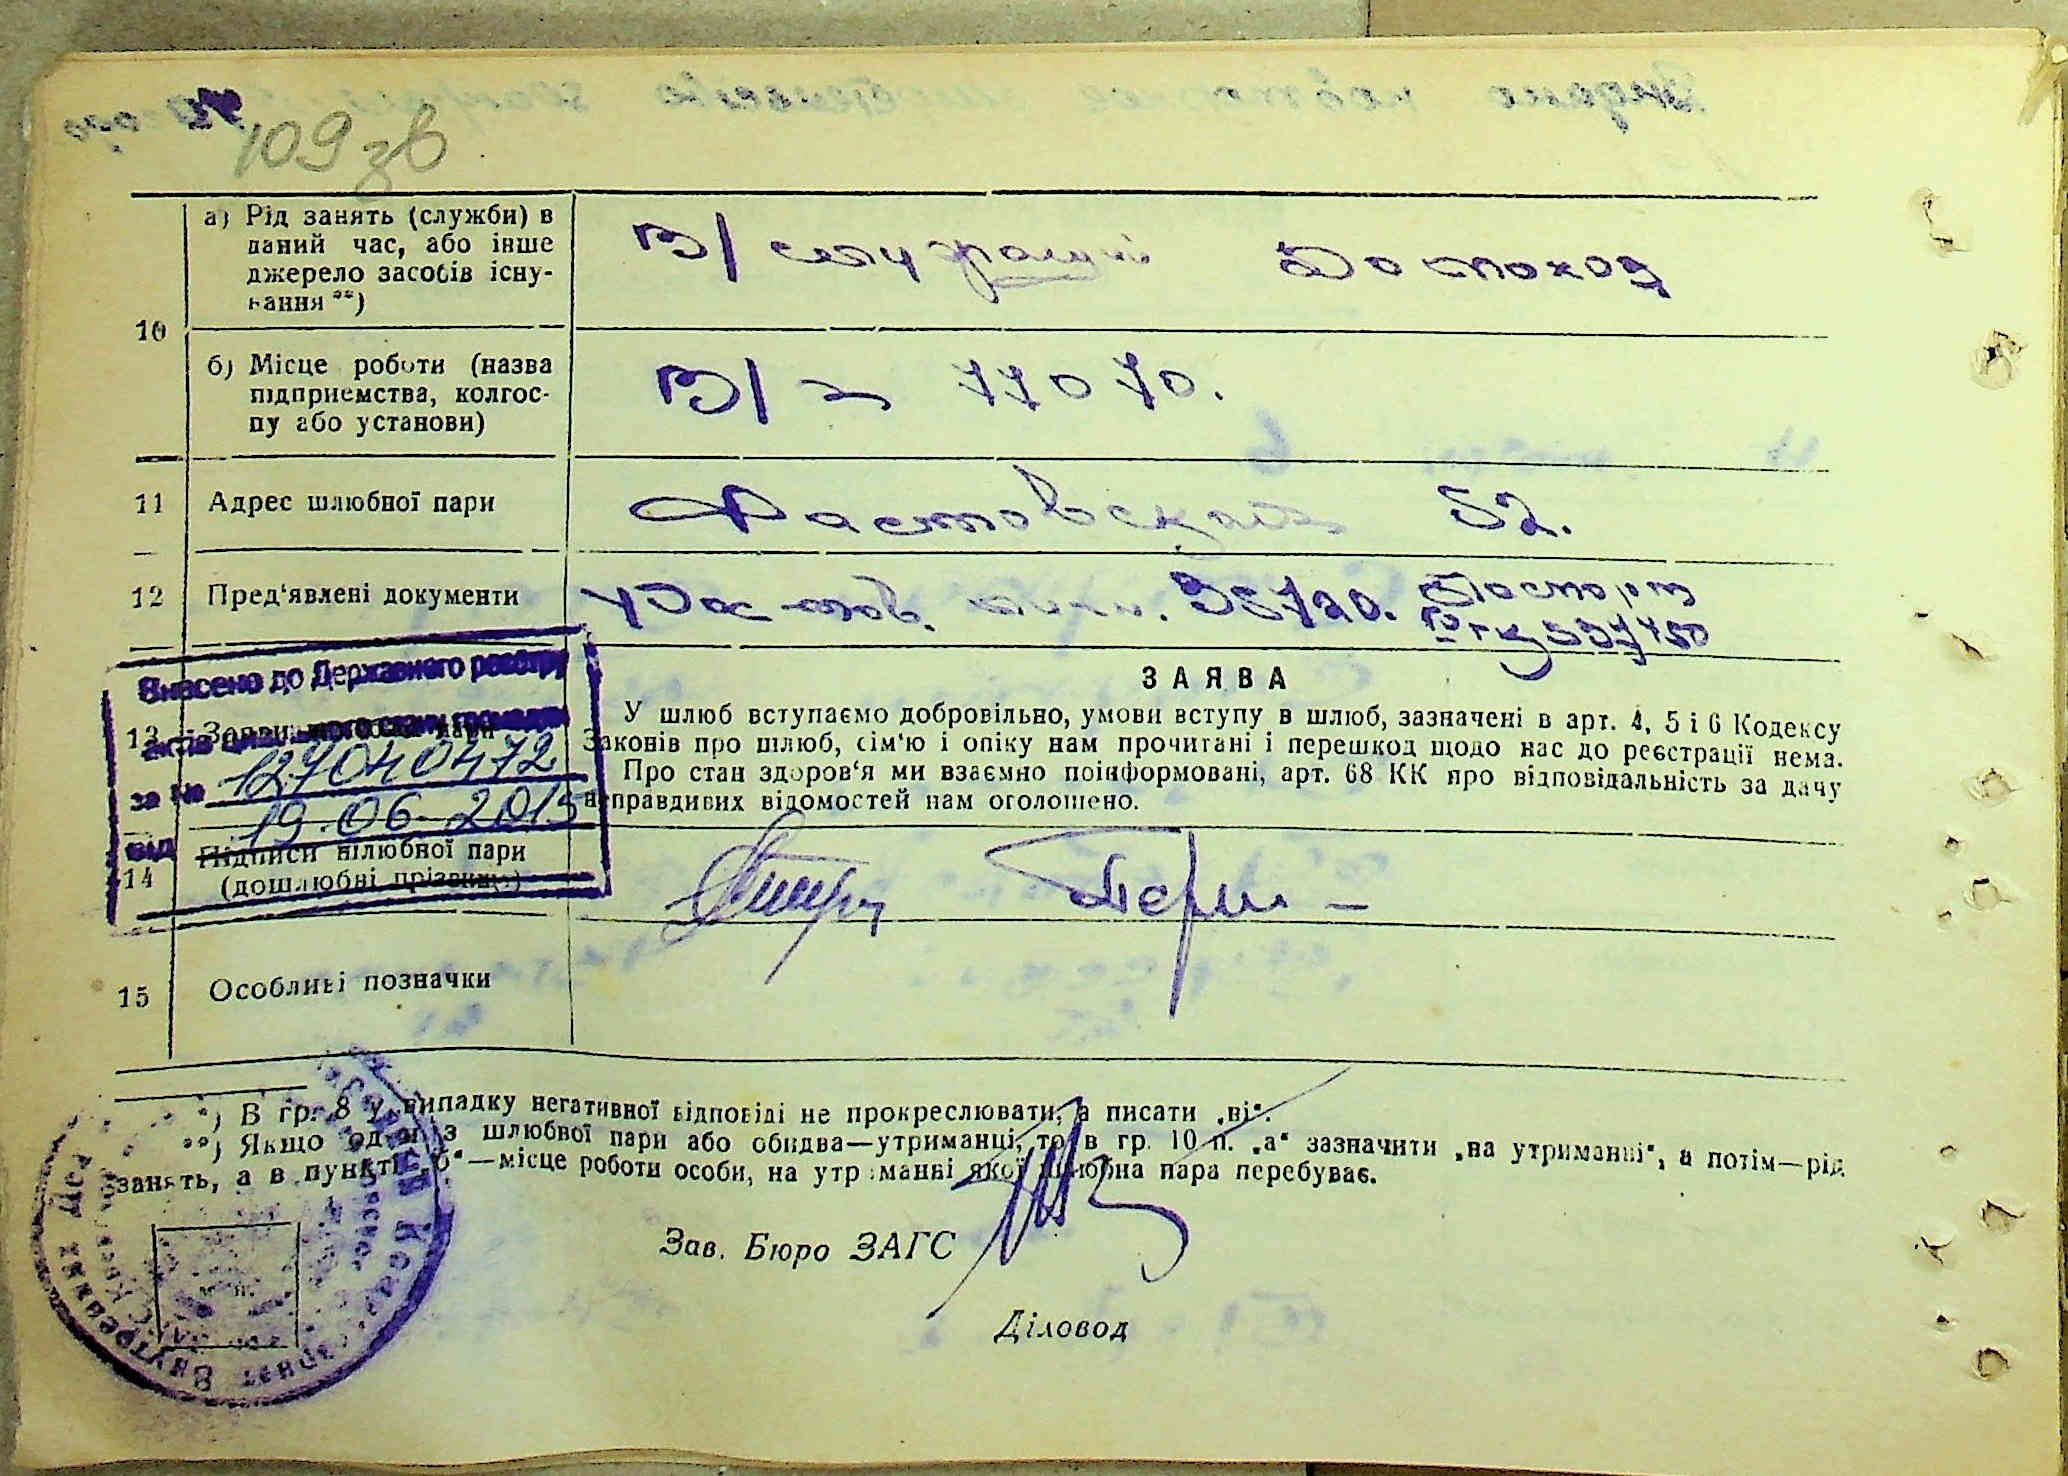 109 зв
а) Рід занять (служби) в
даний час, або інше
джерело засобів існу-
вання **)
В/ служащий Домохоз
10
б) Місце роботи (назва
підприємства, колгос-
пу або установи)
В/ч 77070.
11 Адрес шлюбної пари
52.
12 Пред'явлені документи
35720. Паспорт
Внесено до Державного реєстру
актів цивільного стану громадян
за № 127040472
від 19.06.2015
13
ЗАЯВА
У шлюб вступаємо добровільно, умови вступу в шлюб, зазначені в арт. 4, 5 і 6 Кодексу
Законів про шлюб, сім'ю і опіку нам прочитані і перешкод щодо нас до реєстрації нема.
Про стан здоров'я ми взаємно поінформовані, арт. 68 КК про відповідальність за дачу
неправдивих відомостей нам оголошено.
14 Підписи шлюбної пари
(дошлюбні прізвища)
15 Особливі позначки
*) В гр. 8 у випадку негативної відповіді не прокреслювати, а писати „ні“.
**) Якщо один з шлюбної пари або обидва—утриманці, то в гр. 10 п. „а“ зазначити „на утриманні“, а потім—рід
занять, а в пункті „б“—місце роботи особи, на утриманні якої шлюбна пара перебуває.
Зав. Бюро ЗАГС
Діловод
Внутренних